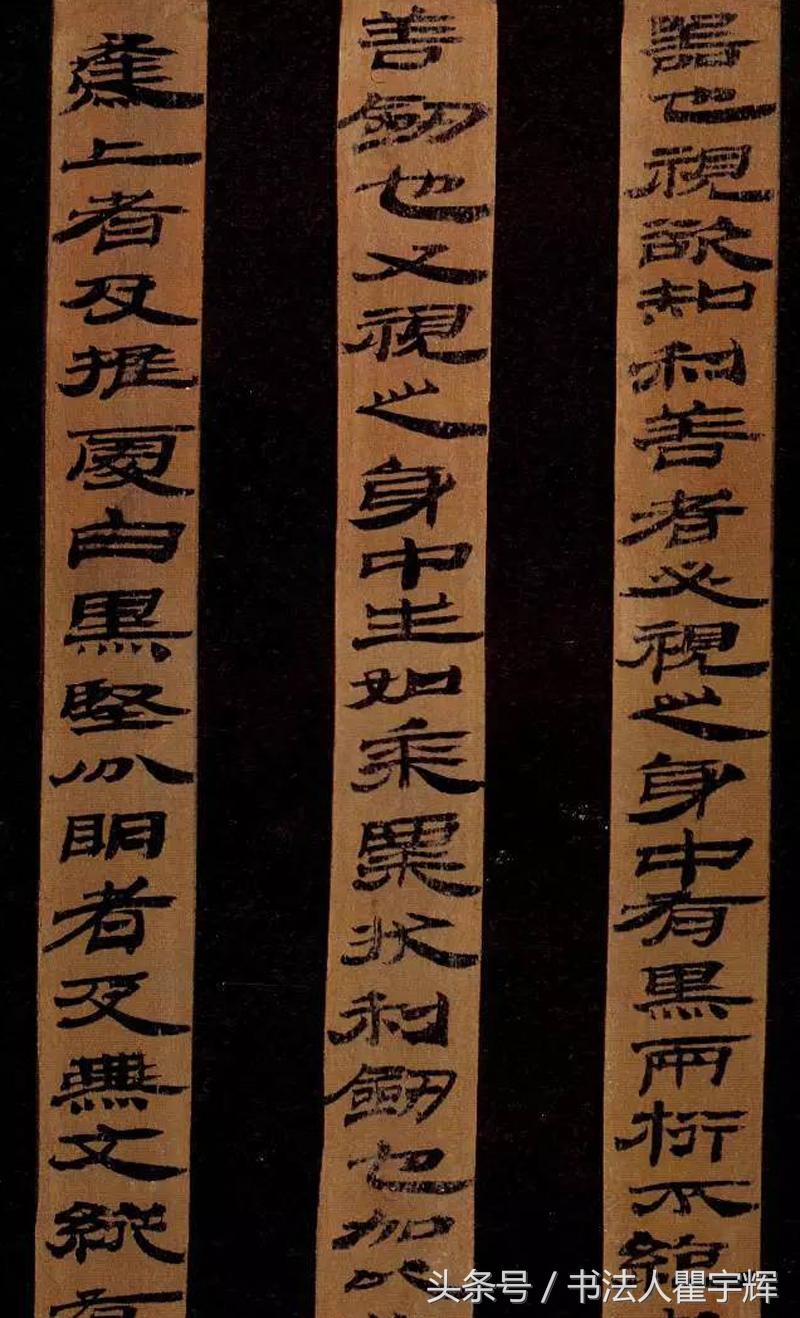 器也視欲知利善者必視之身中有黑兩桁不絕
善劒也又視之身中生如黍粟狀利劒也加以
上者及推處白黑堅分明者及無文縱有
头条号 / 书法人瞿宇辉